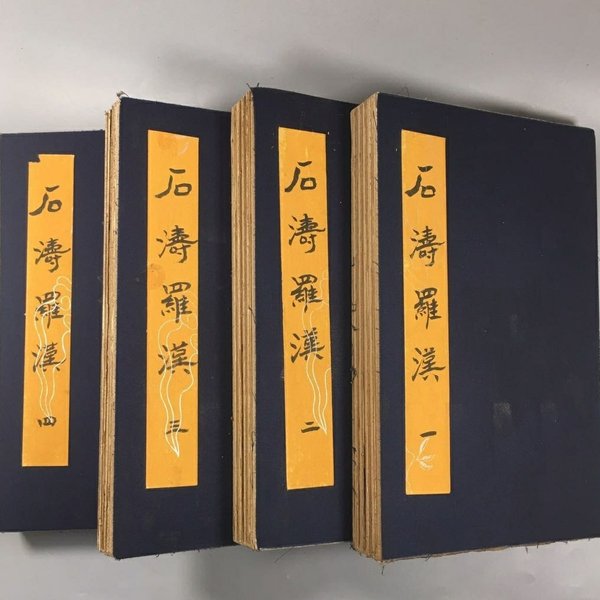 石濤羅漢 一
石濤羅漢 二
石濤羅漢 三
石濤羅漢 四